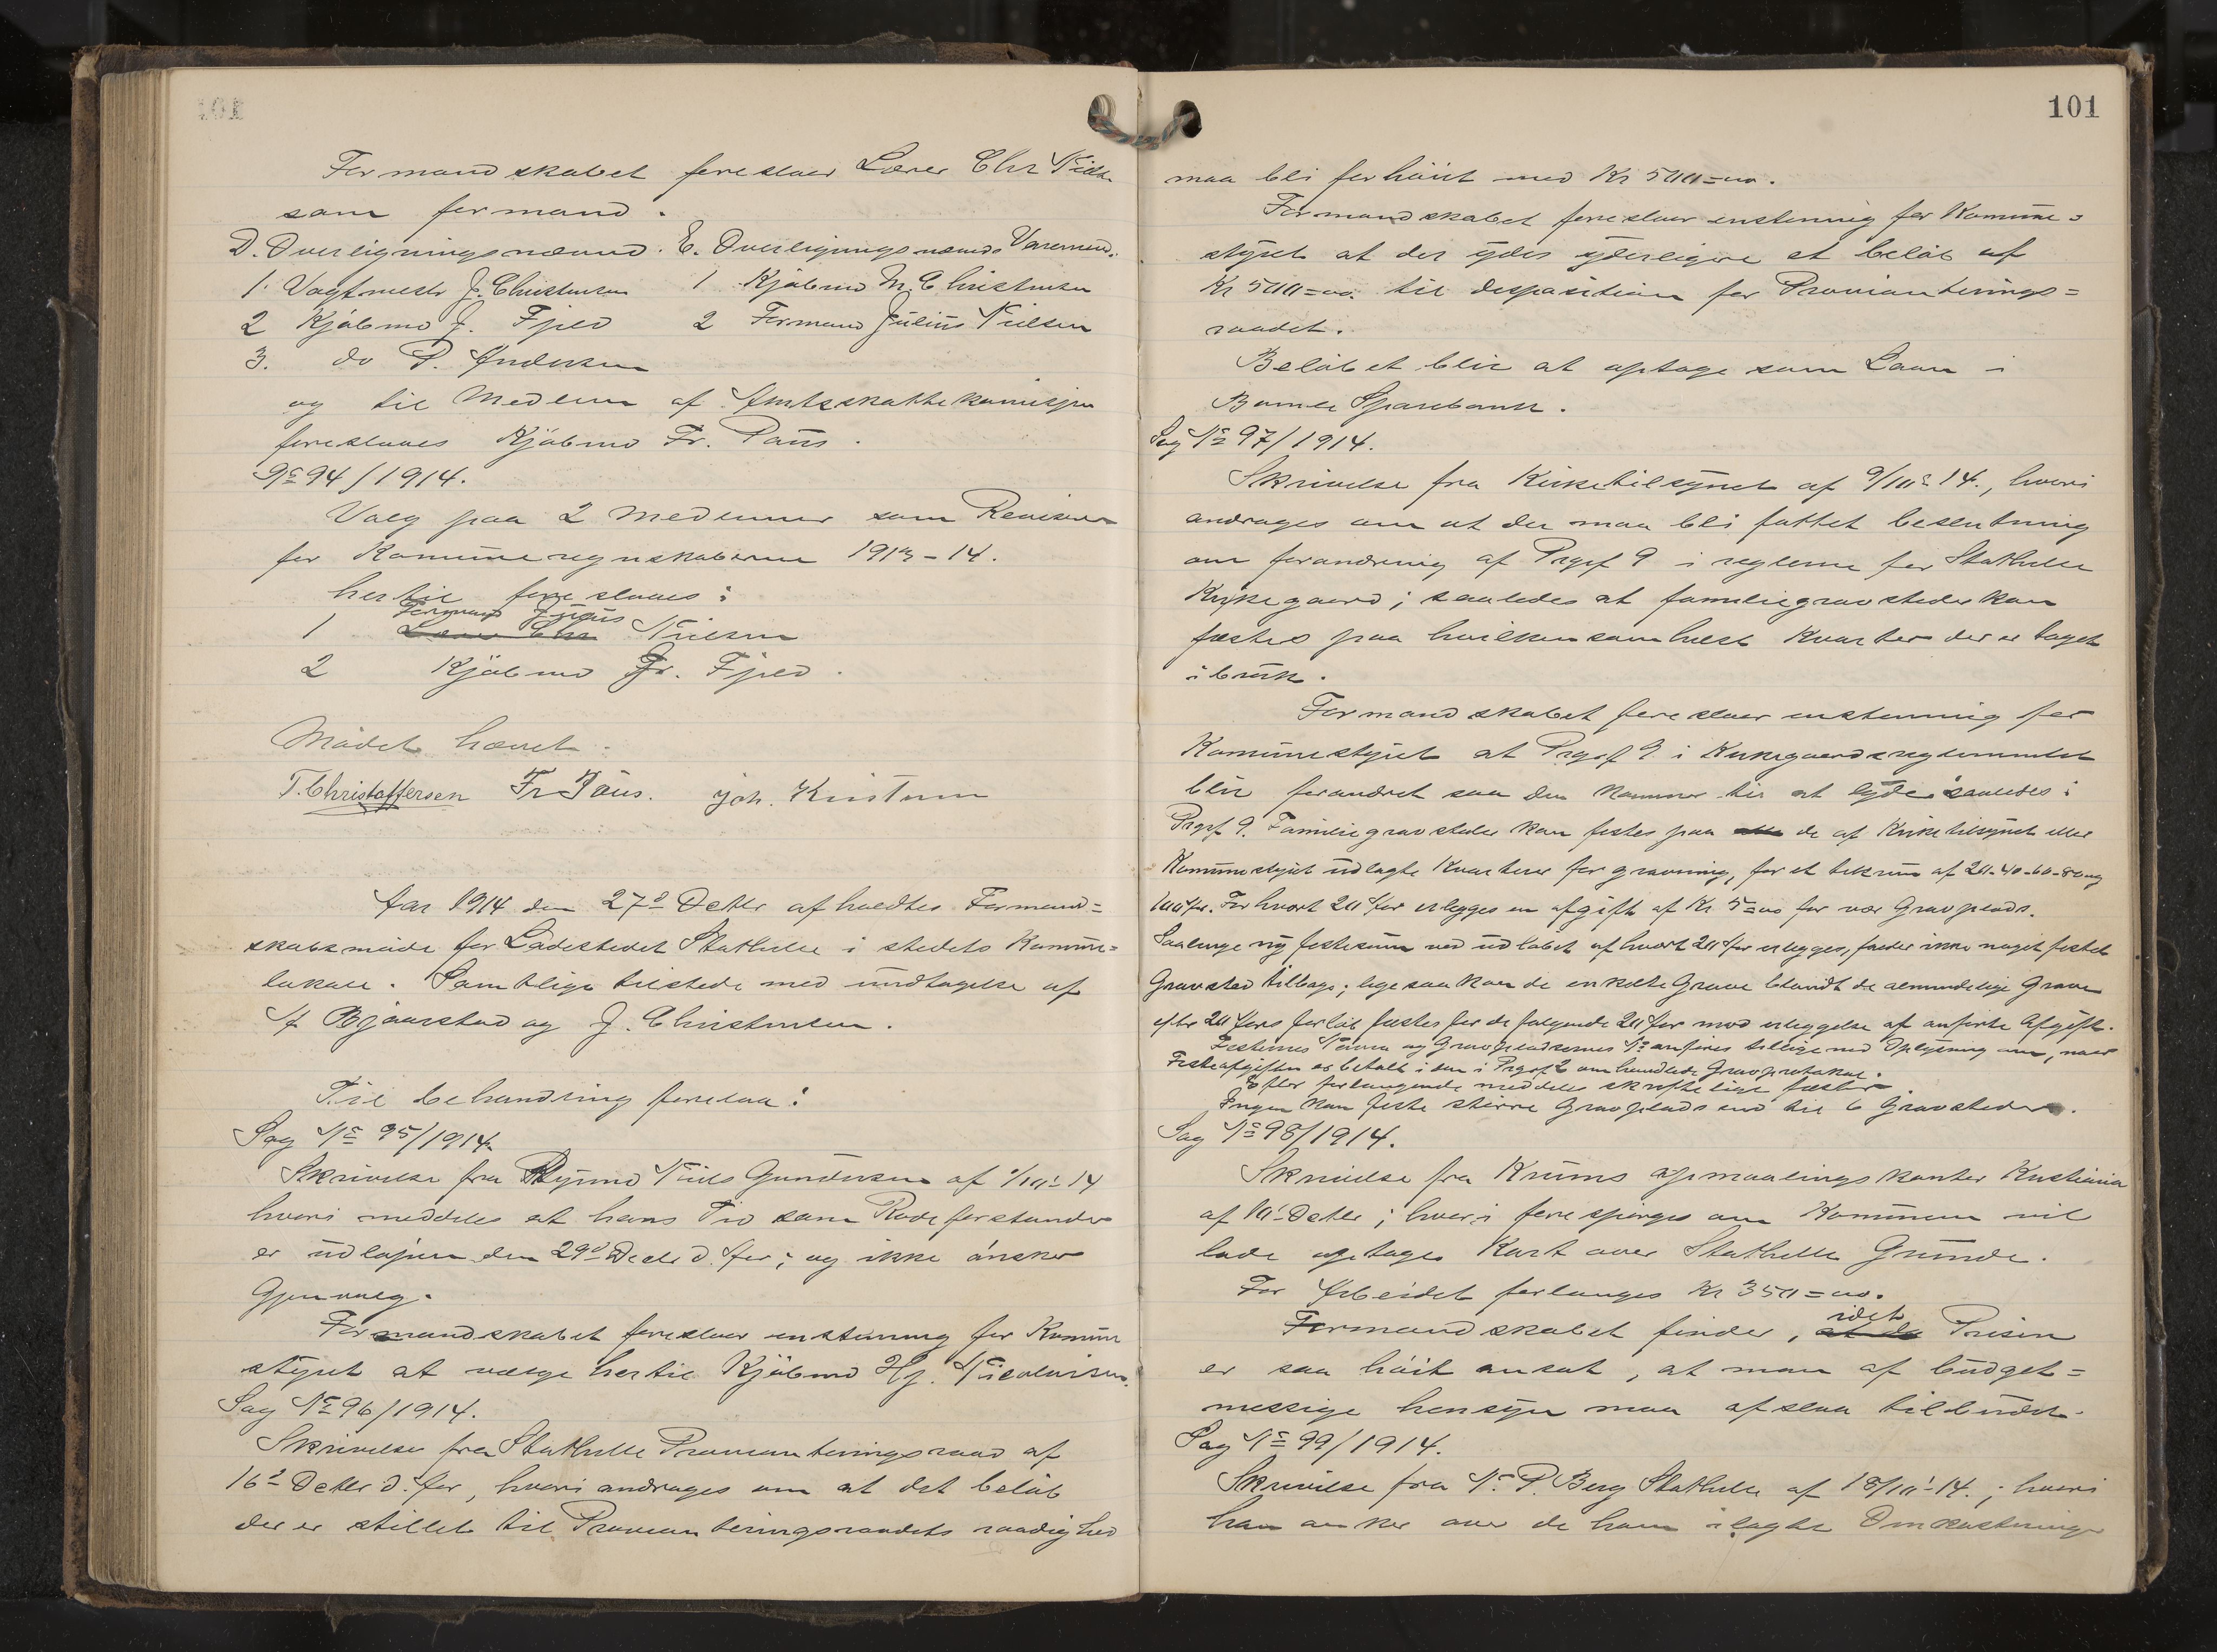 Formandskabet foreslaar Lærer Chr Niels.
som formand.
D. Overligningsnævnd. E. Overligningsnævnds Varamænd.
1. Vagtmestr J. Christensen 1 Kjøbmd M. Christensen
2 Kjøbmd J. Fjeld 2 Formand Julius Nielsen
3. do P. Andersen
og til Medlem af Amtsskattekomisjon
foreslaaes Kjøbmd Fr. Paus.
No 94/1914.
Valg paa 2 Medlemmer som Revisorer
for Komuneregnskaberne 1913-14.
hertil foreslaaes:
Formand Julius
1 Lærer Chr Nielsen
2 Kjøbmd Fr. Fjeld.
Mødet hævet.
T. Christoffersen Fr Paus. Joh. Kristensen
Aar 1914 den 27de Octbr afholdtes Formand=
skabsmøde for Ladestedet Stathelle i stedets Komune=
lokale. Samtlige tilstede med undtagelse af
A Bjaarstad og J. Christensen.
Til behandling forelaa:
Sag No 95/1914.
Skrivelse fra Styrmd Niels Gundersen af 1/10-14
hvori meddeles at hans Tid som Rodeforstander
er udløpen den 29de Octbr d. Aar; og ikke ønsker
Gjenvalg.
Formandskabet foreslaar enstemmig for Komune
styret at vælge hertil Kjøbmd Hj. Nicolaisen.
Sag No 96/1914.
Skrivelse fra Stathelle Provianteringsraad af
16de Octbr d. Aar, hvori andrages om at det beløb
der er stillet til Provianteringsraadets raadighed
101
maa bli forhøiet med Kr 500=00.
Formandskabet foreslaar enstemmig for Komune=
styret at der ydes yderligere et beløb af
Kr 500=00. til desposition for Provianterings=
raadet.
Beløbet blir at optage som Laan i
Bamle Sparebank.
Sag No 97/1914.
Skrivelse fra Kirketilsynet af 9/10-14., hvori
andrages om at der maa bli fattet beslutning
om forandring af Prgrf 9 i reglerne for Stathelle
Kirkegaard; saaledes at familiegravsteder kan
fæstes paa hvilkensomhelst Kvarter der er taget
i bruk.
Formandskabet foreslaar enstemmig for
Komunestyret at Prgrf 9 i Kirkegaardsreglementet
blir forandret saa den kommer til at lyde saaledes:
Prgrf 9. Familiegravsteder kan festes paa alle de af Kirketilsynet eller
Komunestyret udlagte Kvarterer for gravning, for et tidsrum af 20-40-60-80 og
100 Aar. For hvert 20 Aar erlegges en afgift af Kr 5=00 for vær Gravplads.
Saalænge ny festesum ved udløbet af hvert 20 Aar erlegges, falder ikke noget festet
Gravsted tilbage; lige saa kan de enkelte Grave blandt de almindelige Grave
efter 20 Aars forløb fæstes for de følgende 20 Aar mod erleggelse af anførte Afgift.
Festernes Navn og Gravpladsernes No anføres tillige med Oplysning om, naar
Festeafgiften er betalt i den i Prgrf 2 omhandlede Gravprotokol.
Efter forlangende meddeles skriftelige fester.
Ingen kan feste større Gravplads end til 6 Gravsteder.
Sag No 98/1914.
Skrivelse fra Krums opmaalingskontor Kristiania
af 10 Octbr; hvori forespørges om Kommunen vil
lade optage Kart over Stathelle Grunde.
For Arbeidet forlanges Kr 350=00.
idet
Formandskabet finder, at da Prisen
er saa høit ansat, at man af budget=
messige hensyn maa afslaa tilbudet.
Sag No 99/1914.
Skrivelse fra N. P. Berg Stathelle af 18/10-14.; hvori
han anker over de ham ilagte Omkostninger